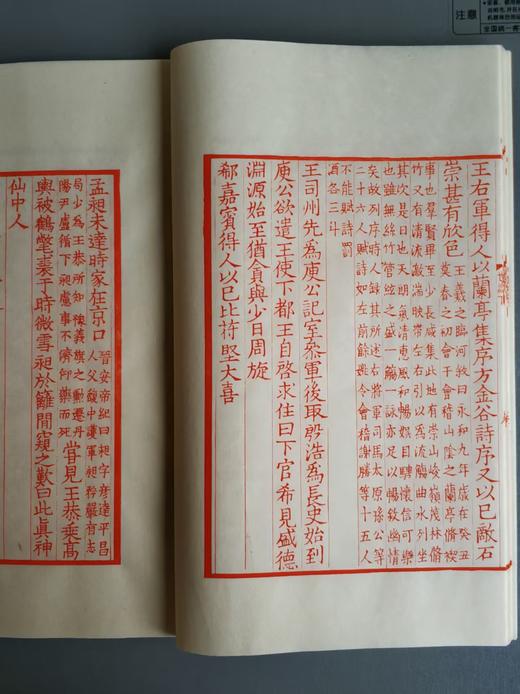 注意
王右軍得人以蘭亭集序方金谷詩序又以已敵石
崇甚有欣色
王羲之臨河敘曰永和九年歲在癸丑
莫春之初會于會稽山陰之蘭亭脩禊
事也羣賢畢至少長咸集此地有崇山峻嶺茂林脩
竹又有清流激湍映帶左右引以為流觴曲水列坐
其次是日也天朗氣清惠風和暢娛目騁懷信可樂
也雖無絲竹管弦之盛一觴一詠亦足以暢敘幽情
矣故列序時人錄其所述右將軍司馬太原孫公等
二十六人賦詩如左前餘姚令會稽謝勝等十五人
不能賦詩罰
酒各三斗
王司州先為庾公記室參軍後取殷浩為長史始到
庾公欲遣王使下都王自啓求住曰下官希見盛德
淵源始至猶貪與少日周旋
郗嘉賓得人以已比苻堅大喜
孟昶未達時家在京口
晉安帝紀曰昶字彥達平昌
人父馥中護軍昶矜嚴有志
局少為王恭所知豫義旗之勳遷丹
陽尹盧循下昶慮事不濟仰藥而死
嘗見王恭乘高
輿被鶴氅裘于時微雪昶於籬間窺之歎曰此真神
仙中人